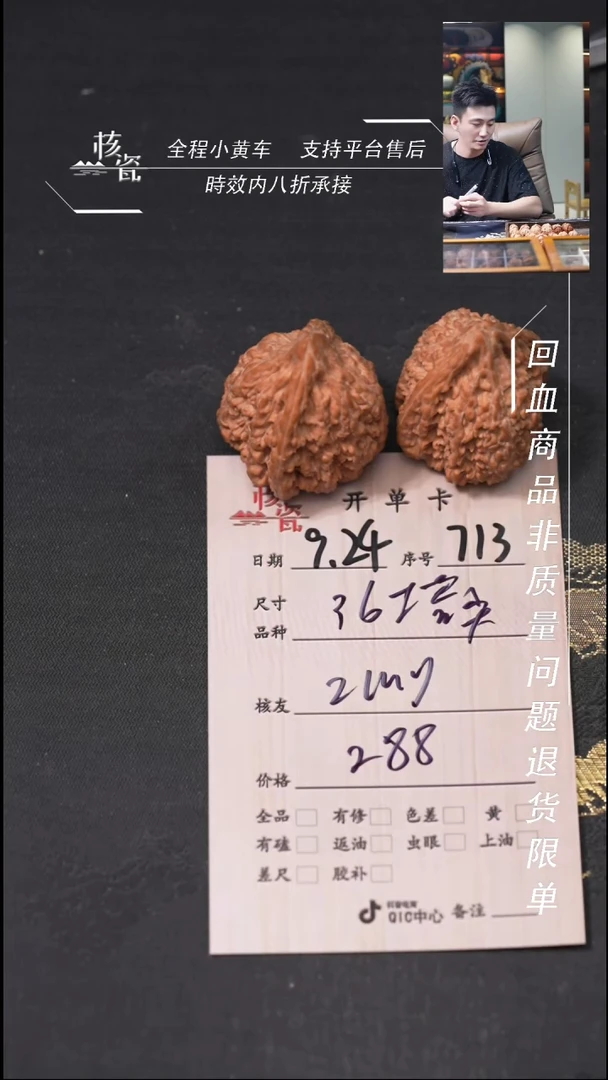 核瓷
全程小黄车 支持平台售后
時效内八折承接
回血商品非质量问题退货限单
核瓷
开单卡
日期 9.24 序号 713
尺寸 36
品种
核友
价格 288
全品 有修 色差 黄
有磕 返油 虫眼 上油
差尺 胶补
抖音电商
QIC中心 备注